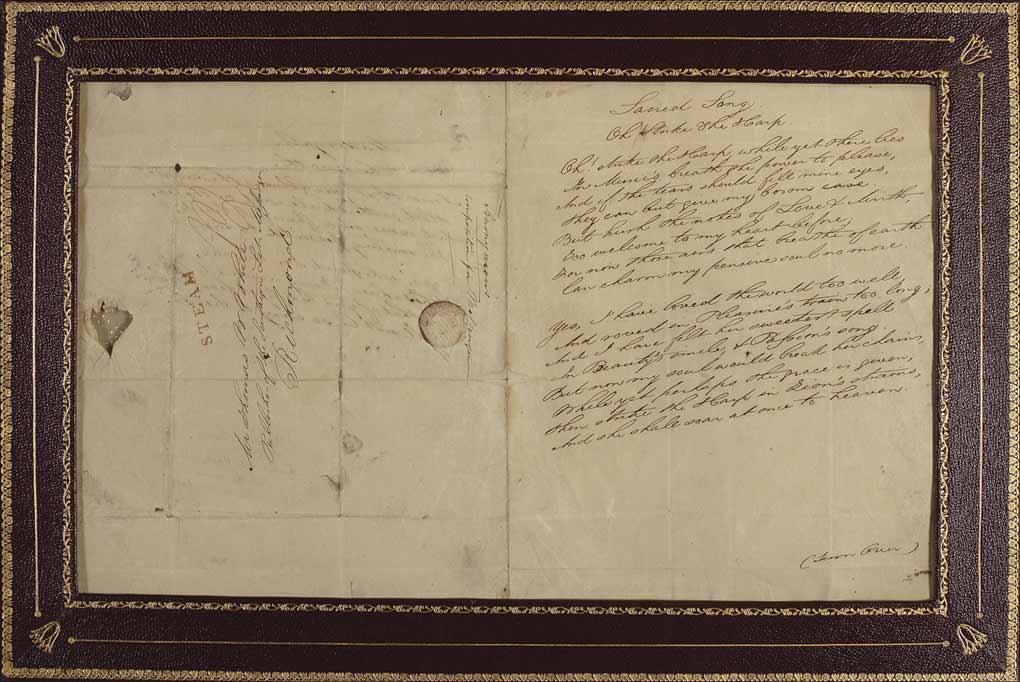 Mr Thomas W. White
Publisher of the Southern Lit. Messenger
Richmond
STEAM
Anonymous
composition for Messenger
Sacred Song.
Oh Strike the Harp
Oh! strike the Harp, while yet there lies
In Music's breath the power to please,
And if the tears should fill mine eyes,
They can but give my bosom ease
But hush the notes of Love & Mirth,
Too welcome to my heart before;
For now those airs that breathe of earth
Can charm my pensive soul no more.
Yes, I have loved the world too well,
And roved in Pleasure's train too long;
And I have felt her sweetest spell
In Beauty's smile, & Passion's song
But now my soul would break her chain,
While yet perhaps the grace is given;
Then strike the Harp in Zion's strains,
And she shall soar at once to heaven.
(Turn Over)